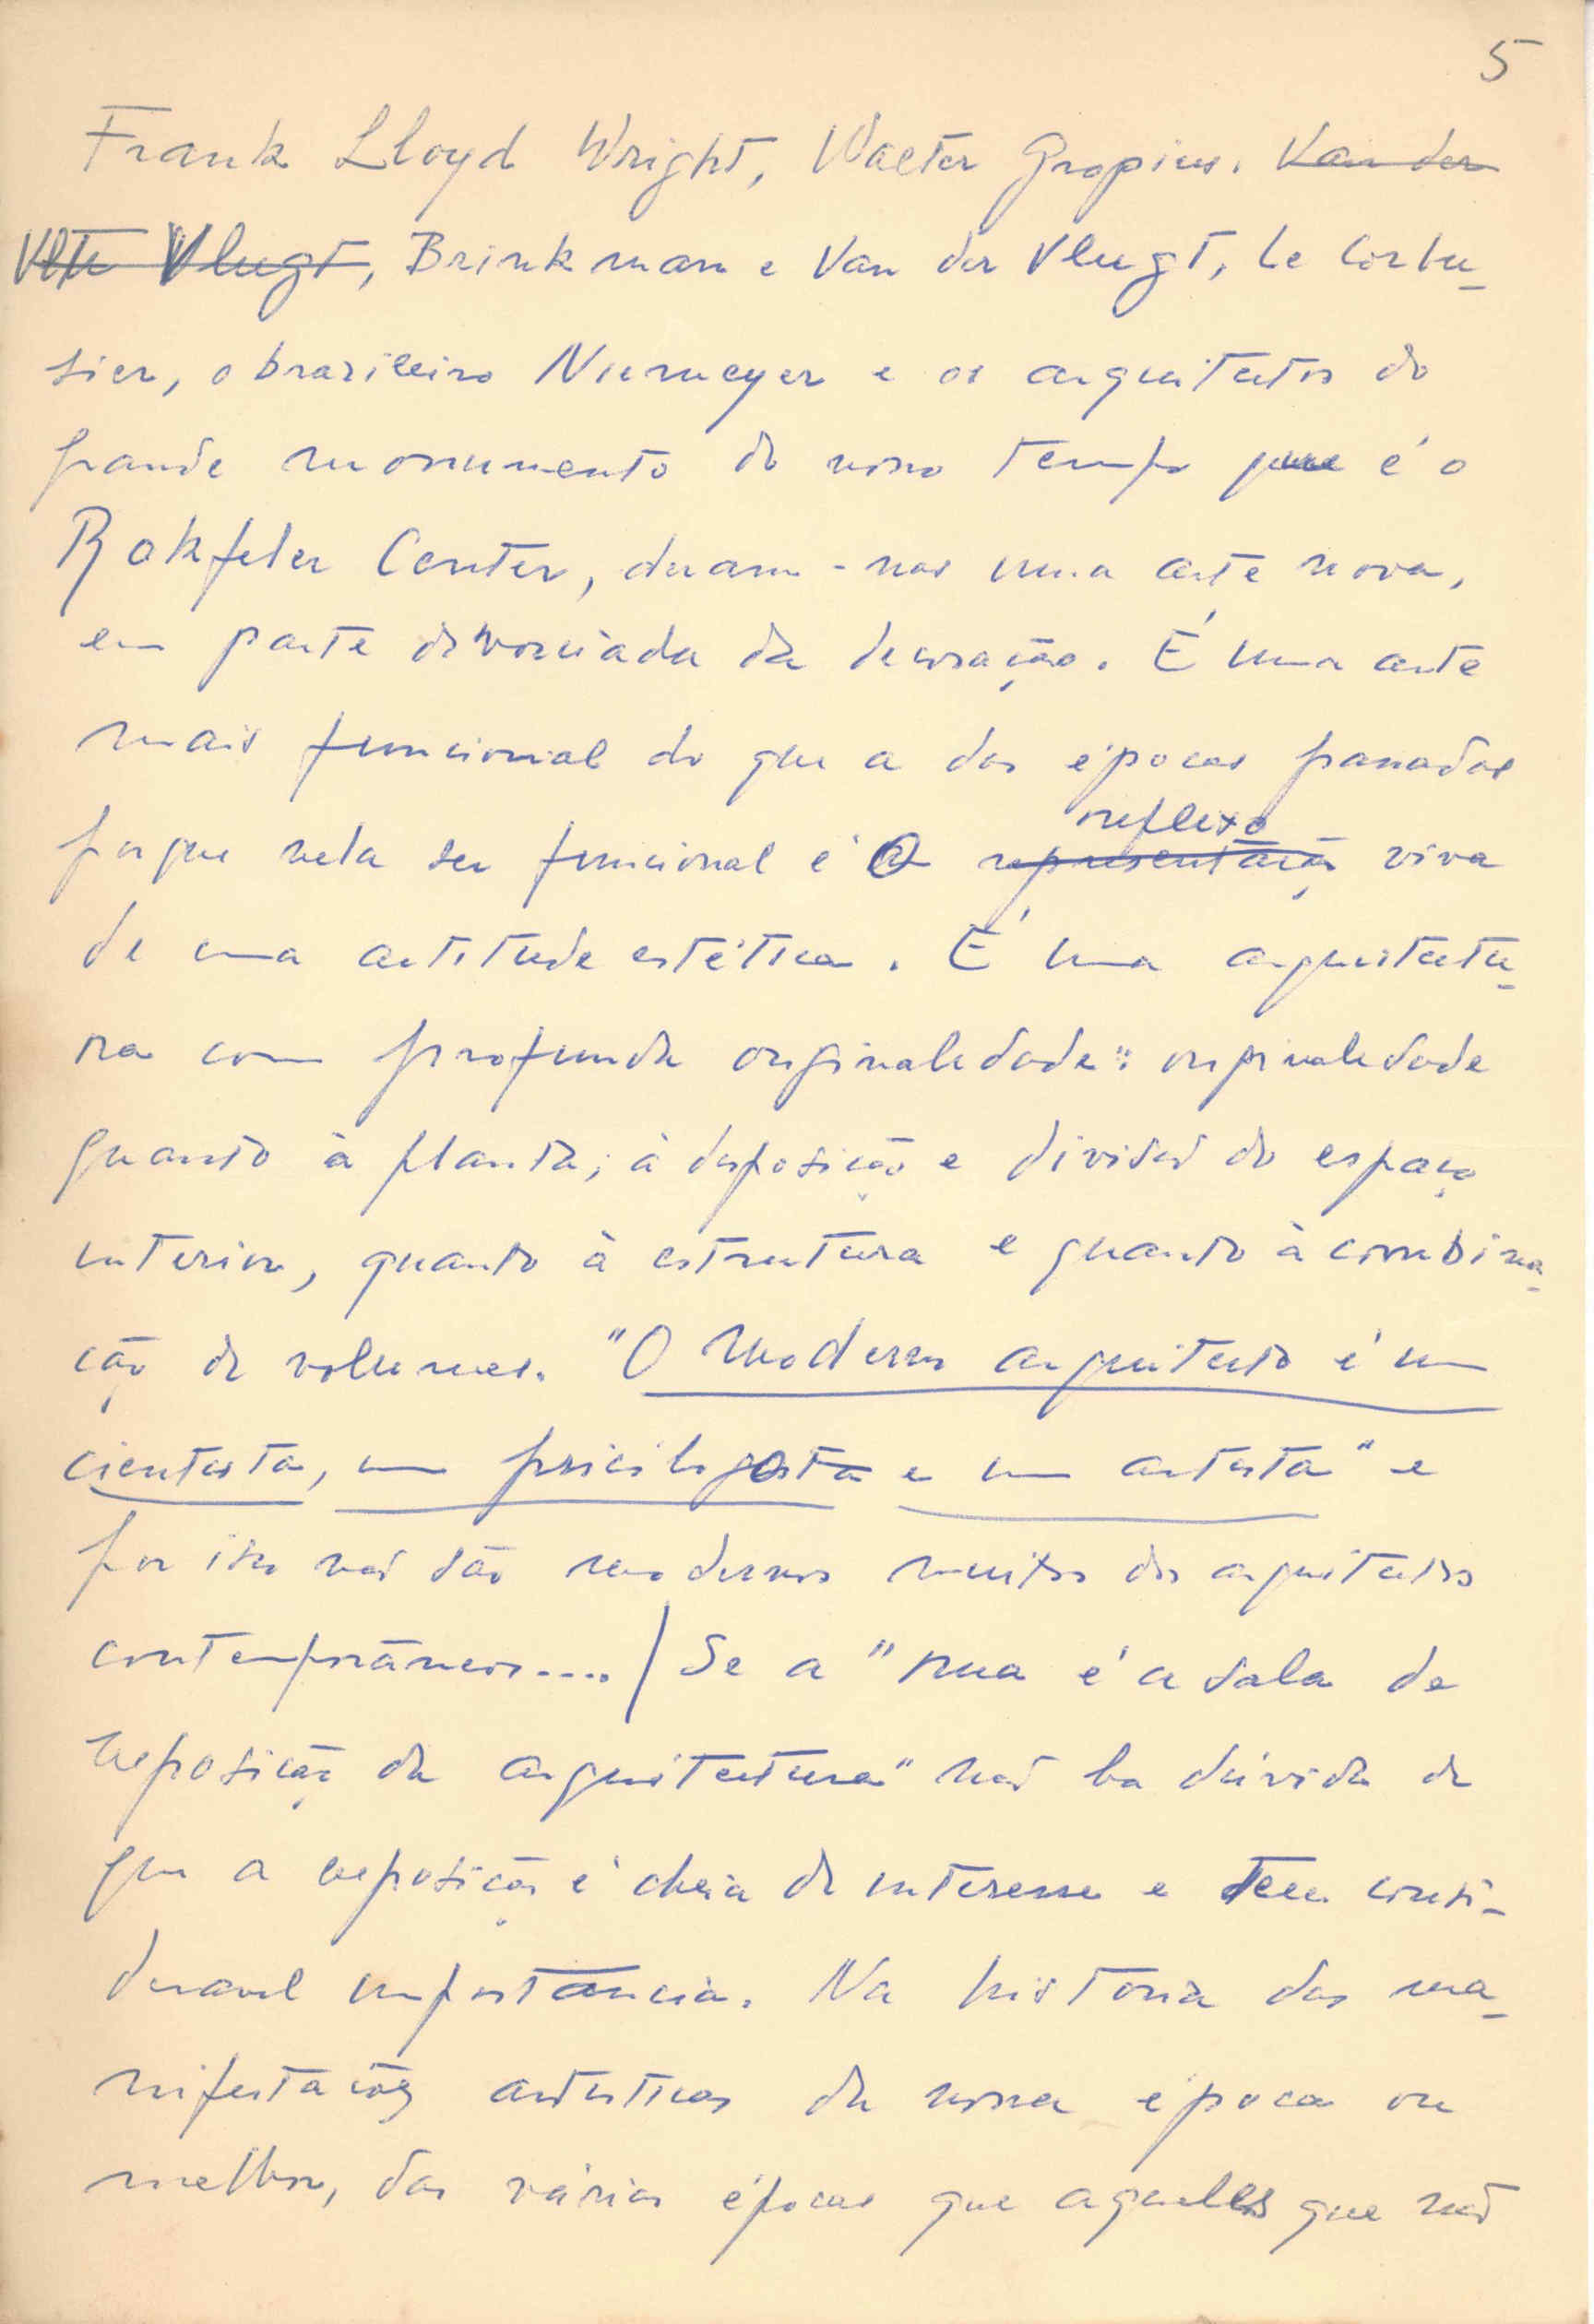 5
Frank Lloyd Wright, Walter Gropius. Van der
Vlugt, Brinkman e Van der Vlugt, Le Corbu-
sier, o brazileiro Niemeyer e os arquitectos do
grande monumento do nosso tempo que é o
Rokfeler Center, deram-nos uma arte nova,
em parte divorciada da decoração. É uma arte
mais funcional do que a das épocas passadas
reflexo
porque nela ser funcional é o representação viva
de uma actitude estética. É uma arquitectu-
ra com profunda originalidade: originalidade
quanto à planta, à disposição e divisão do espaço
interior, quanto à estrutura e quanto à combina-
ção de volumes. "O moderno arquitecto é um
cientista, um psicilogista e um artista" e
por isso não são modernos muitos dos arquitectos
contemporâneos..../ Se a "rua é a sala de
exposição da arquitectura" não ha dúvida de
que a exposição é cheia de interesse e tem consi-
deravel importância. Na historia das ma-
nifestações artisticas da nossa época ou
melhor, das várias épocas que aqueles que não